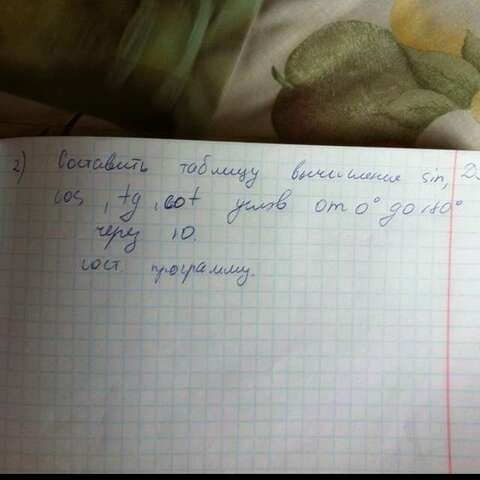 2) Составить таблицу вычисления sin,
cos, tg, cot углов от 0° до 180°
через 10.
сост. программу.